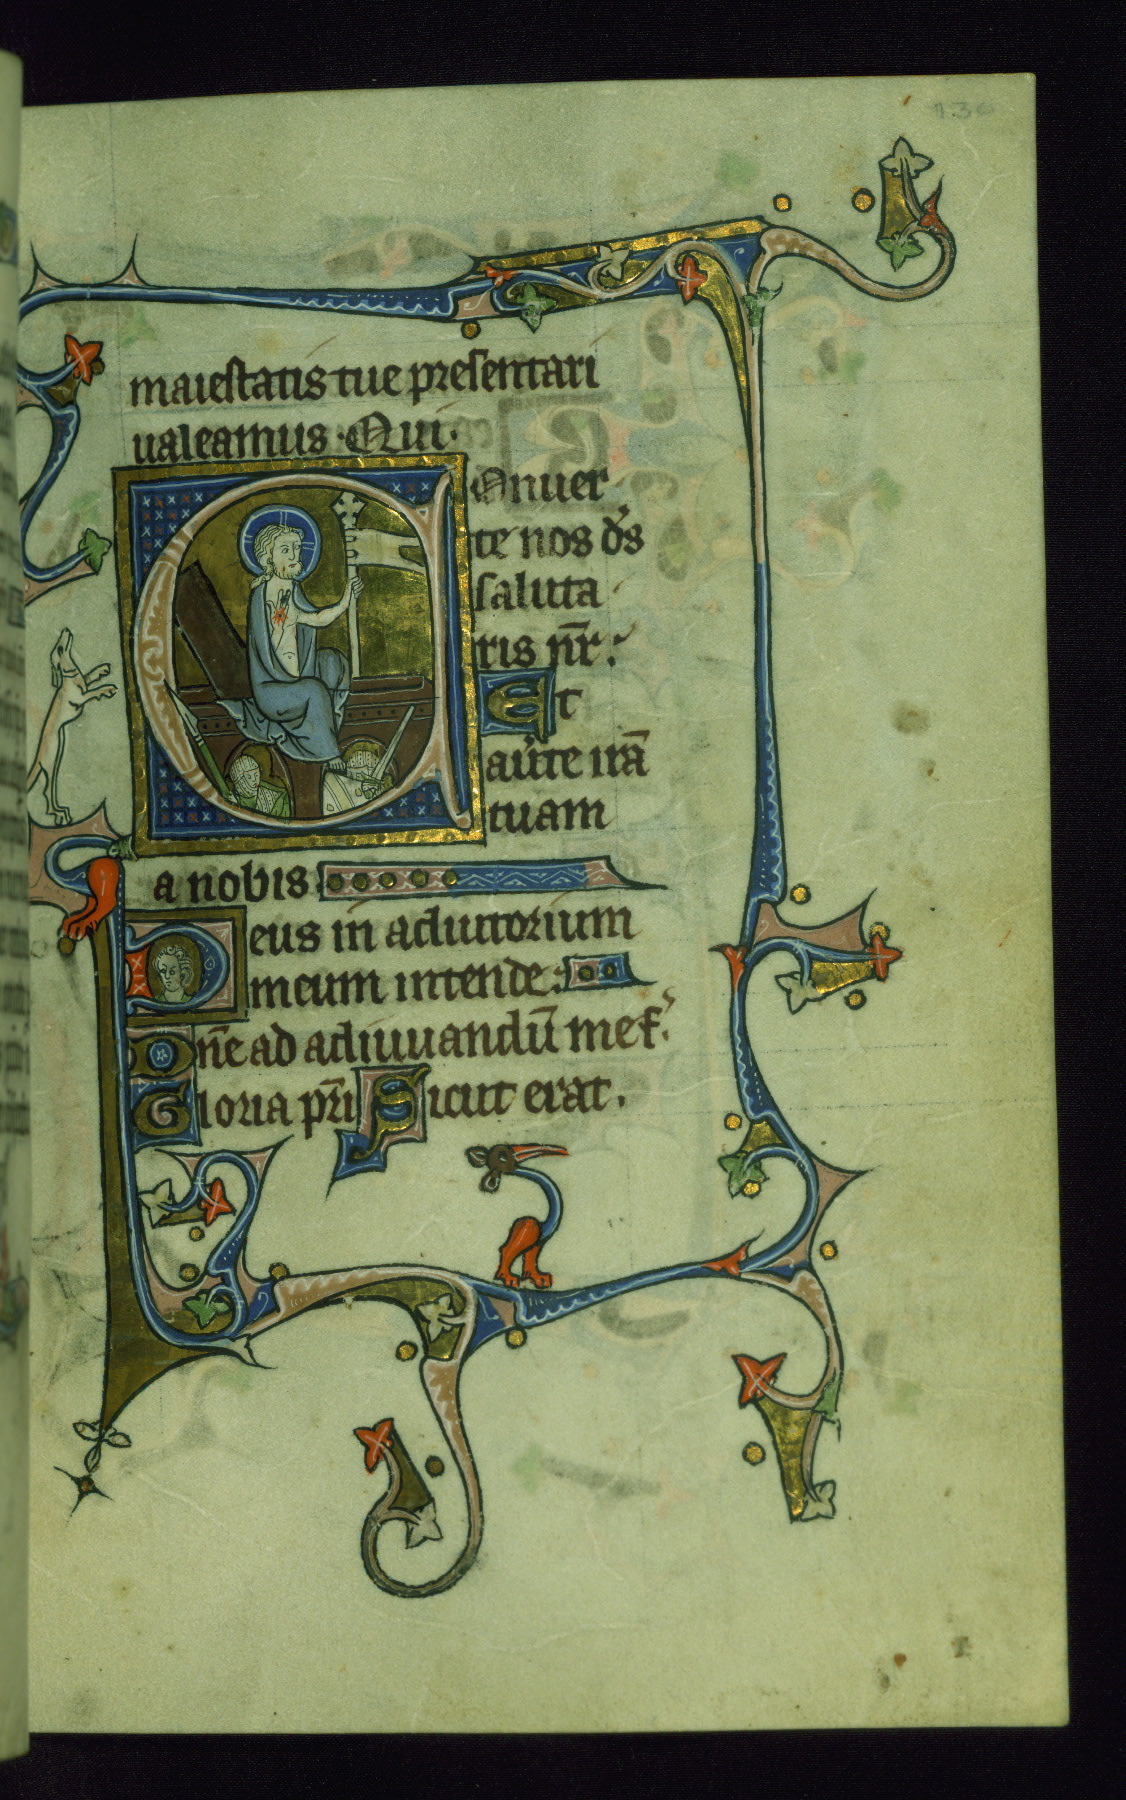 130
maiestatis tue presentari
ualeamus. Qui.
Conuer
te nos ds̄
saluta
ris nr̄.
Et
aūte irā
tuam
a nobis
Deus in adiutorium
meum intende.
Dn̄e ad adiuuandū me f.
Gloria pr̄i Sicut erat.